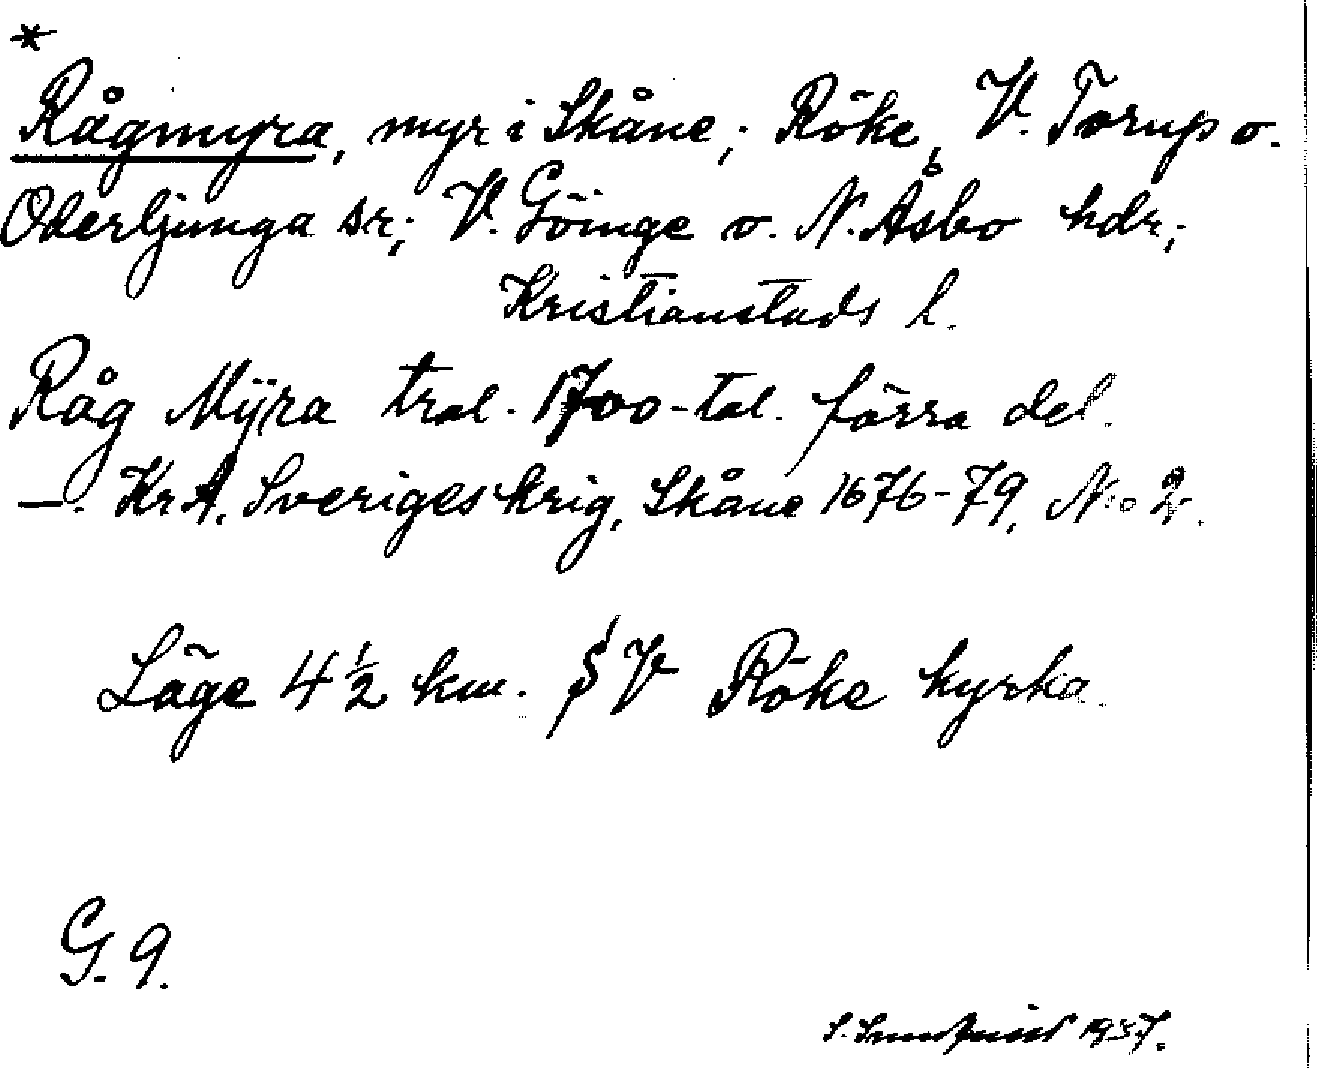 *
Rågmyra, myr i Skåne; Röke, V. Torup o.
Oderljunga sr; V. Göinge o. N. Åsbo hdr;
Kristianstads l.
Råg Mÿra tral. 1700-tal. förra del.
—. KrA. Sveriges krig, Skåne 1676-79, N:o 2.
Läge 4 ½ km. V Röke kyrka.
G. 9.
S. 1937.